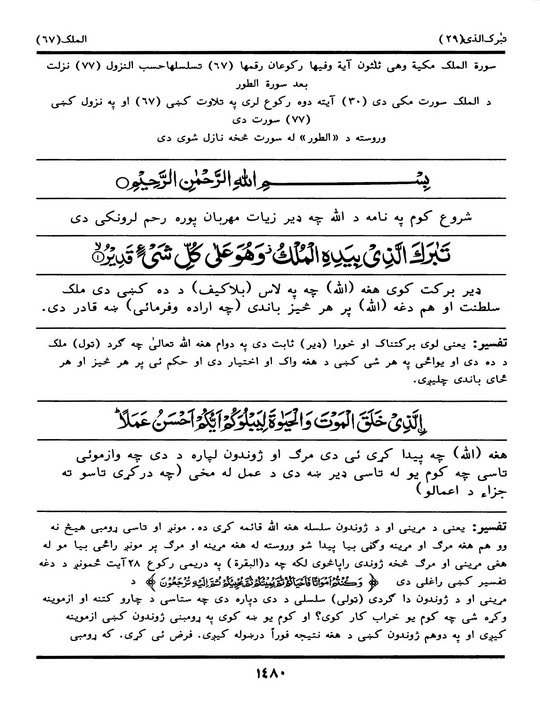 تبٰرك الذى (٢٩) الملك (٦٧)
سورة الملك مكية وهى ثلثون آية وفيها ركوعان رقمها (٦٧) تسلسلهاحسب النزول (٧٧) نزلت
بعد سورة الطور
د الملك سورت مكى دى (٣٠) آيته دوه ركوع لرى په تلاوت كښى (٦٧) او په نزول كښى
(٧٧) سورت دى
وروسته د «الطور» له سورت څخه نازل شوى دى
بِسْمِ اللهِ الرَّحْمٰنِ الرَّحِيْمِ○
شروع كوم په نامه د الله چه ډير زيات مهربان پوره رحم لرونكى دى
تَبٰرَكَ الَّذِىْ بِيَدِهِ الْمُلْكُ وَهُوَ عَلٰى كُلِّ شَىْءٍ قَدِيْرُۨ ﴿١﴾
ډير بركت كوى هغه (الله) چه په لاس (بلاكيف) د ده كښى دى ملك
سلطنت او هم دغه (الله) پر هر څيز باندى (چه اراده وفرمائى) ښه قادر دى.
تفسير: يعنى لوى بركتناك او خورا (ډير) ثابت دى په دوام هغه الله تعالىٰ چه ګرد (ټول) ملك
د ده دى او يواځى په هر شى كښى د هغه واك او اختيار دى او حكم ئى پر هر څيز او هر
ځاى باندى چليږى.
اِلَّذِىْ خَلَقَ الْمَوْتَ وَالْحَيٰوةَ لِيَبْلُوَكُمْ اَيُّكُمْ اَحْسَنُ عَمَلًا
هغه (الله) چه پيدا كړى ئى دى مرګ او ژوندون لپاره د دى چه وازموئى
تاسى چه كوم يو له تاسى ډير ښه دى د عمل له مخى (چه دركړى تاسو ته
جزاء د اعمالو)
تفسير: يعنى د مړينى او د ژوندون سلسله هغه الله قائمه كړى ده. مونږ او تاسى ړومبى هيڅ نه
وو هم هغه مرګ او مړينه وګڼى بيا پيدا شو وروسته له هغه مړينه او مرګ پر مونږ راځى بيا مو له
هغى مړينى او مرګ څخه ژوندى راپاڅوى لكه چه د(البقرة) په دريمى ركوع ٢٨ آيت ځمونږ د دغه
تفسير كښى راغلى دى ﴿ وَكُنْتُمْ اَمْوَاتًا فَاَحْيَاكُمْ ثُمَّ يُمِيْتُكُمْ ثُمَّ يُحْيِيْكُمْ ثُمَّ اِلَيْهِ تُرْجَعُوْنَ ﴾ د
مړينى او د ژوندون دا ګردى (ټولى) سلسلى د دى دپاره دى چه ستاسى د چارو كتنه او ازموينه
وكړه شى چه كوم يو خراب كار كوى؟ او كوم يو ښه كوى په ړومبنى ژوندون كښى ازموينه
كيږى او په دوهم ژوندون كښى د هغه نتيجه فوراً درښوله كيږى. فرض ئى كړى. كه ړومبى
١٤٨٠